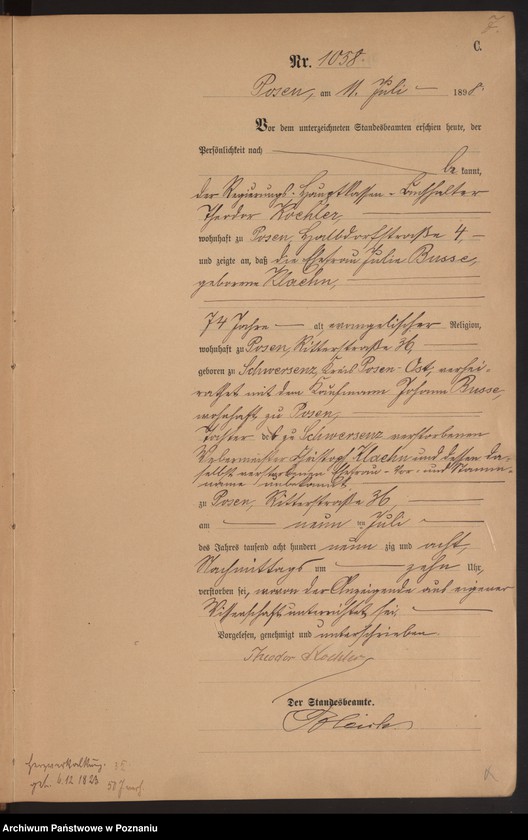 7.
C.
Nr. 1058.
Posen, am 11. Juli 1898.
Vor dem unterzeichneten Standesbeamten erschien heute, der
Persönlichkeit nach
be kannt,
der Regierungs-Hauptkassen-Buchhalter
Theodor Kochler,
wohnhaft zu Posen, Halbdorfstraße 4,
und zeigte an, daß die Ehefrau Julie Busse,
geborene Klaehn,
74 Jahre alt, evangelischer Religion,
wohnhaft zu Posen, Ritterstraße 36,
geboren zu Schwersenz, Kreis Posen-Ost, verhei-
rathet mit dem Kaufmann Johann Busse,
wohnhaft zu Posen,
Tochter des zu Schwersenz verstorbenen
Webermeister Christoph Klaehn und dessen da-
selbst verstorbenen Ehefrau - Vor- und Stamm-
name unbekannt,
zu Posen, Ritterstraße 36,
am neun ten Juli
des Jahres tausend acht hundert neun zig und acht,
Nachmittags um zehn Uhr,
verstorben sei, wovon der Anzeigende aus eigener
Wissenschaft unterrichtet sei.
Vorgelesen, genehmigt und unterschrieben
Theodor Kochler
Der Standesbeamte.
Herzverkalkung.
geb. 6.12 1823
Archiwum Państwowe w Poznaniu